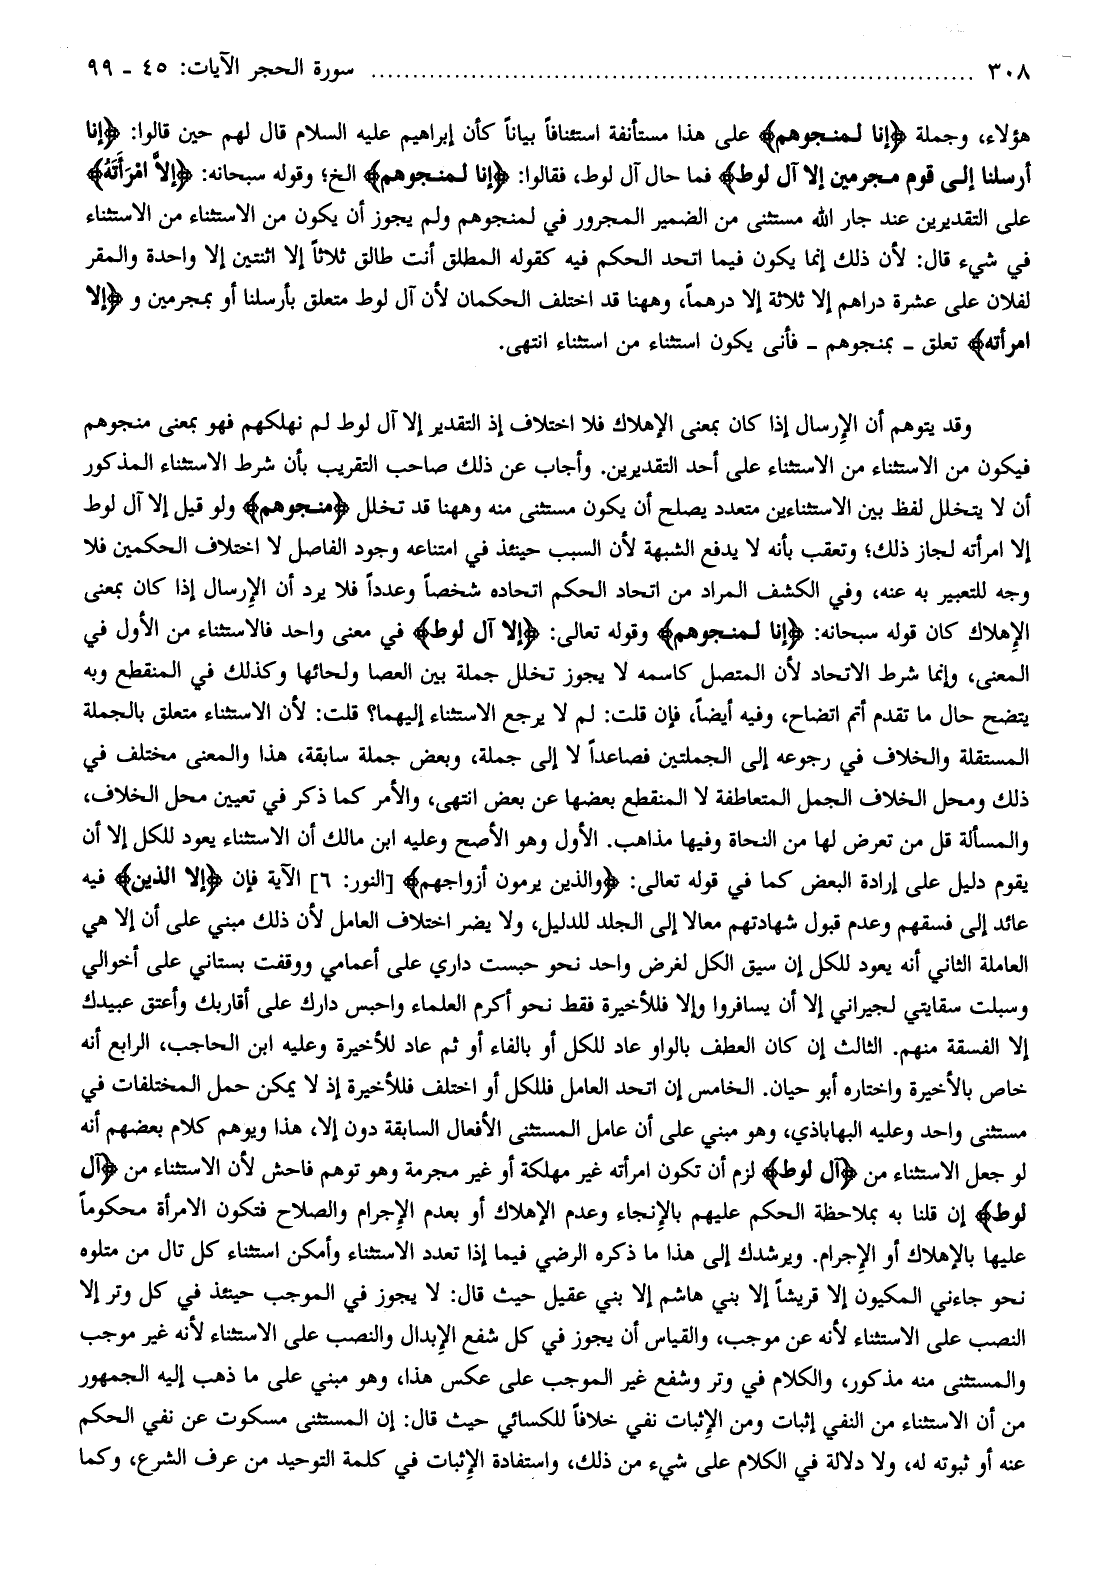 ٣٠٨ ........................................................................ سورة الحجر الآيات: ٤٥ ـ ٩٩
هؤلاء، وجملة ﴿إنا لمنجوهم﴾ على هذا مستأنفة استئنافاً بياناً كأن إبراهيم عليه السلام قال لهم حين قالوا: ﴿إنا
أرسلنا إلى قوم مجرمين إلا آل لوط﴾ فما حال آل لوط، فقالوا: ﴿إنا لمنجوهم﴾ الخ؛ وقوله سبحانه: ﴿إلاَّ امْرَأَتَهُ﴾
على التقديرين عند جار الله مستثنى من الضمير المجرور في لمنجوهم ولم يجوز أن يكون من الاستثناء من الاستثناء
في شيء قال: لأن ذلك إنما يكون فيما اتحد الحكم فيه كقوله المطلق أنت طالق ثلاثاً إلا اثنتين إلا واحدة والمقر
لفلان على عشرة دراهم إلا ثلاثة إلا درهماً، وههنا قد اختلف الحكمان لأن آل لوط متعلق بأرسلنا أو بمجرمين و ﴿إلا
امرأته﴾ تعلق ـ بمنجوهم ـ فأنى يكون استثناء من استثناء انتهى.
وقد يتوهم أن الإِرسال إذا كان بمعنى الإهلاك فلا اختلاف إذ التقدير إلا آل لوط لم نهلكهم فهو بمعنى منجوهم
فيكون من الاستثناء من الاستثناء على أحد التقديرين. وأجاب عن ذلك صاحب التقريب بأن شرط الاستثناء المذكور
أن لا يتخلل لفظ بين الاستثناءين متعدد يصلح أن يكون مستثنى منه وههنا قد تخلل ﴿منجوهم﴾ ولو قيل إلا آل لوط
إلا امرأته لجاز ذلك؛ وتعقب بأنه لا يدفع الشبهة لأن السبب حينئذ في امتناعه وجود الفاصل لا اختلاف الحكمين فلا
وجه للتعبير به عنه، وفي الكشف المراد من اتحاد الحكم اتحاده شخصاً وعدداً فلا يرد أن الإِرسال إذا كان بمعنى
الإهلاك كان قوله سبحانه: ﴿إنا لمنجوهم﴾ وقوله تعالى: ﴿إلا آل لوط﴾ في معنى واحد فالاستثناء من الأول في
المعنى، وإنما شرط الاتحاد لأن المتصل كاسمه لا يجوز تخلل جملة بين العصا ولحائها وكذلك في المنقطع وبه
يتضح حال ما تقدم أتم اتضاح، وفيه أيضاً، فإن قلت: لم لا يرجع الاستثناء إليهما؟ قلت: لأن الاستثناء متعلق بالجملة
المستقلة والخلاف في رجوعه إلى الجملتين فصاعداً لا إلى جملة، وبعض جملة سابقة، هذا والمعنى مختلف في
ذلك ومحل الخلاف الجمل المتعاطفة لا المنقطع بعضها عن بعض انتهى، والأمر كما ذكر في تعيين محل الخلاف،
والمسألة قل من تعرض لها من النحاة وفيها مذاهب. الأول وهو الأصح وعليه ابن مالك أن الاستثناء يعود للكل إلا أن
يقوم دليل على إرادة البعض كما في قوله تعالى: ﴿والذين يرمون أزواجهم﴾ [النور: ٦] الآية فإن ﴿إلا الذين﴾ فيه
عائد إلى فسقهم وعدم قبول شهادتهم معالا إلى الجلد للدليل، ولا يضر اختلاف العامل لأن ذلك مبني على أن إلا هي
العاملة الثاني أنه يعود للكل إن سيق الكل لغرض واحد نحو حبست داري على أعمامي ووقفت بستاني على أخوالي
وسبلت سقايتي لجيراني إلا أن يسافروا وإلا فللأخيرة فقط نحو أكرم العلماء واحبس دارك على أقاربك وأعتق عبيدك
إلا الفسقة منهم. الثالث إن كان العطف بالواو عاد للكل أو بالفاء أو ثم عاد للأخيرة وعليه ابن الحاجب، الرابع أنه
خاص بالأخيرة واختاره أبو حيان. الخامس إن اتحد العامل فللكل أو اختلف فللأخيرة إذ لا يمكن حمل المختلفات في
مستثنى واحد وعليه البهاباذي، وهو مبني على أن عامل المستثنى الأفعال السابقة دون إلا، هذا ويوهم كلام بعضهم أنه
لو جعل الاستثناء من ﴿آل لوط﴾ لزم أن تكون امرأته غير مهلكة أو غير مجرمة وهو توهم فاحش لأن الاستثناء من ﴿آل
لوط﴾ إن قلنا به بملاحظة الحكم عليهم بالإِنجاء وعدم الإهلاك أو بعدم الإِجرام والصلاح فتكون الامرأة محكوماً
عليها بالإهلاك أو الإِجرام. ويرشدك إلى هذا ما ذكره الرضي فيما إذا تعدد الاستثناء وأمكن استثناء كل تال من متلوه
نحو جاءني المكيون إلا قريشاً إلا بني هاشم إلا بني عقيل حيث قال: لا يجوز في الموجب حينئذ في كل وتر إلا
النصب على الاستثناء لأنه عن موجب، والقياس أن يجوز في كل شفع الإبدال والنصب على الاستثناء لأنه غير موجب
والمستثنى منه مذكور، والكلام في وتر وشفع غير الموجب على عكس هذا، وهو مبني على ما ذهب إليه الجمهور
من أن الاستثناء من النفي إثبات ومن الإِثبات نفي خلافاً للكسائي حيث قال: إن المستثنى مسكوت عن نفي الحكم
عنه أو ثبوته له، ولا دلالة في الكلام على شيء من ذلك، واستفادة الإثبات في كلمة التوحيد من عرف الشرع، وكما